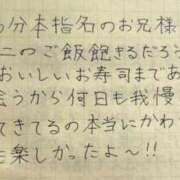 分本指名のお兄様
ニのご飯飽きるだろう
おいしいお寿司まであ
会うから何日も我慢
てきてるの本当にかわ
も楽しかったよ〜!!